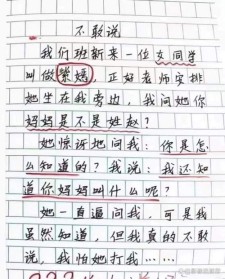 不敢说
我们班新来一位女同学
叫做紫嫣，正好老师安排
她坐在我旁边，我问她你
妈妈是不是姓赵？
她惊讶地问我：你是怎
么知道的？我说：我还知
道你妈妈叫什么呢？
她一直追问我，可是我
虽然知道，但我真的不敢
说，我怕她打我……
???